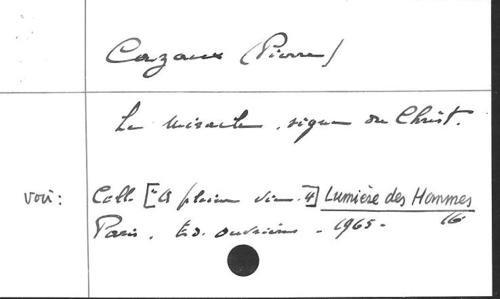 Cazaux (Pierre)
Le miracle, signe du Christ.
Voir: Coll. ["A pleine vie" 4] Lumière des Hommes
Paris. Ed. ouvrières. 1965. 16